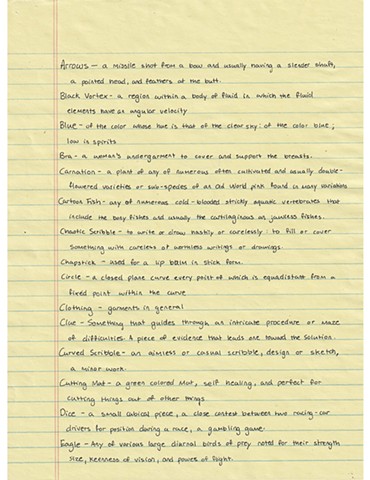 Arrows — a missile shot from a bow and usually having a slender shaft,
a pointed head, and feathers at the butt.
Black Vortex - a region within a body of fluid in which the fluid
elements have an angular velocity
Blue - of the color whose hue is that of the clear sky: of the color blue;
low in spirits
Bra - a woman's undergarment to cover and support the breasts.
Carnation - a plant of any of numerous often cultivated and usually double-
flowered varieties or sub-species of an old world pink found in many variations
Cartoon Fish - any of numerous cold-blooded strictly aquatic vertebrates that
include the bony fishes and usually the cartilaginous or jawless fishes.
Chaotic Scribble - to write or draw hastily or carelessly : to fill or cover
something with careless or worthless writings or drawings.
Chapstick - used for a lip balm in stick form.
Circle - a closed plane curve every point of which is equadistant from a
fixed point within the curve
Clothing - garments in general
Clue - Something that guides through an intricate procedure or maze
of difficulties. A piece of evidence that leads one toward the solution.
Curved Scribble - an aimless or casual scribble, design or sketch,
a minor work.
Cutting Mat - a green colored Mat, self healing, and perfect for
cutting things out of other things
Dice - a small cubical piece, a close contest between two racing-car
drivers for position during a race, a gambling game.
Eagle - Any of various large diurnal birds of prey noted for their strength
size, keenness of vision, and powers of flight.